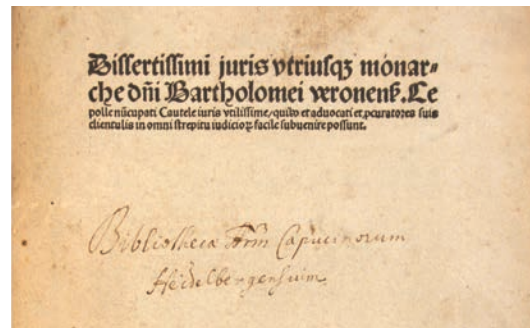 Dissertissimi juris vtriusqȝ monar-
che dñi Bartholomei veronenẜ. Ce
polle nūcupati Cautele iuris vtilissime, quibꝰ et aduocati et ꝓcuratores suis
clientulis in omni strepitu iudicioꝝ facile subuenire possunt.
Bibliotheca Frm̃ Capucinorum
Heidelbergensium.